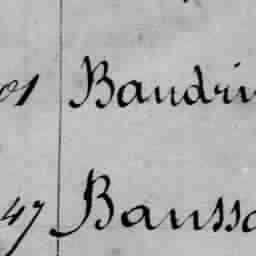 01 Baudri
47 Baussa